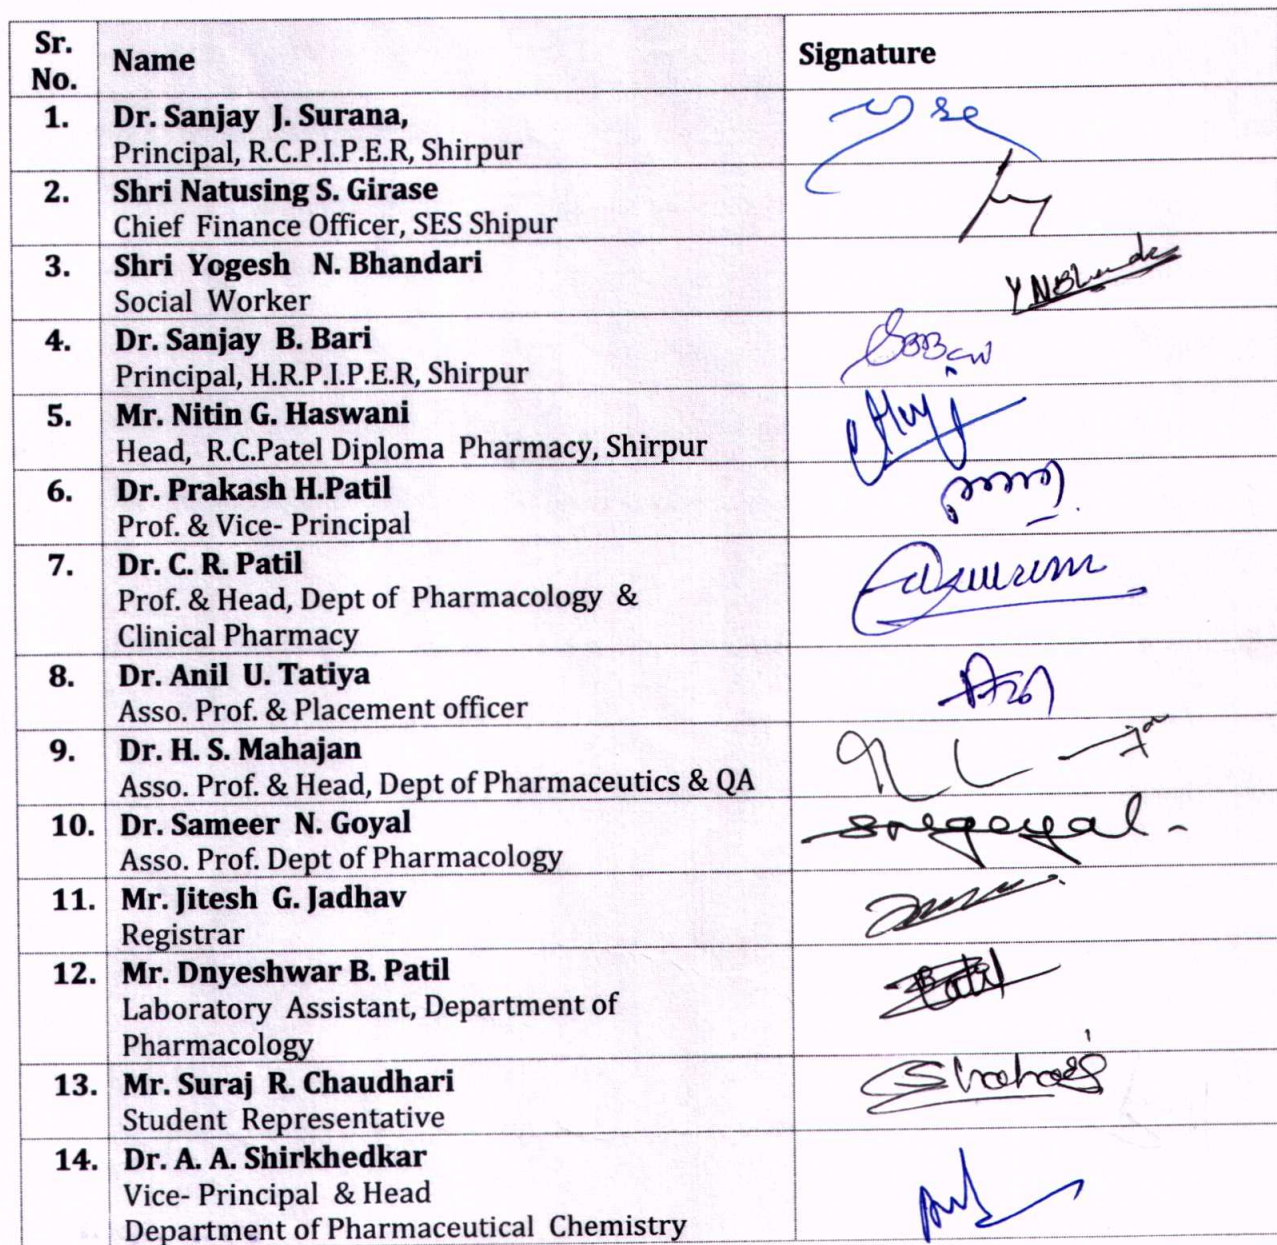 Sr. No. Name Signature
1. Dr. Sanjay J. Surana,
Principal, R.C.P.I.P.E.R, Shirpur
2. Shri Natusing S. Girase
Chief Finance Officer, SES Shipur
3. Shri Yogesh N. Bhandari
Social Worker
4. Dr. Sanjay B. Bari
Principal, H.R.P.I.P.E.R, Shirpur
5. Mr. Nitin G. Haswani
Head, R.C.Patel Diploma Pharmacy, Shirpur
6. Dr. Prakash H.Patil
Prof. & Vice- Principal
7. Dr. C. R. Patil
Prof. & Head, Dept of Pharmacology &
Clinical Pharmacy
8. Dr. Anil U. Tatiya
Asso. Prof. & Placement officer
9. Dr. H. S. Mahajan
Asso. Prof. & Head, Dept of Pharmaceutics & QA
10. Dr. Sameer N. Goyal
Asso. Prof. Dept of Pharmacology
11. Mr. Jitesh G. Jadhav
Registrar
12. Mr. Dnyeshwar B. Patil
Laboratory Assistant, Department of
Pharmacology
13. Mr. Suraj R. Chaudhari
Student Representative
14. Dr. A. A. Shirkhedkar
Vice- Principal & Head
Department of Pharmaceutical Chemistry